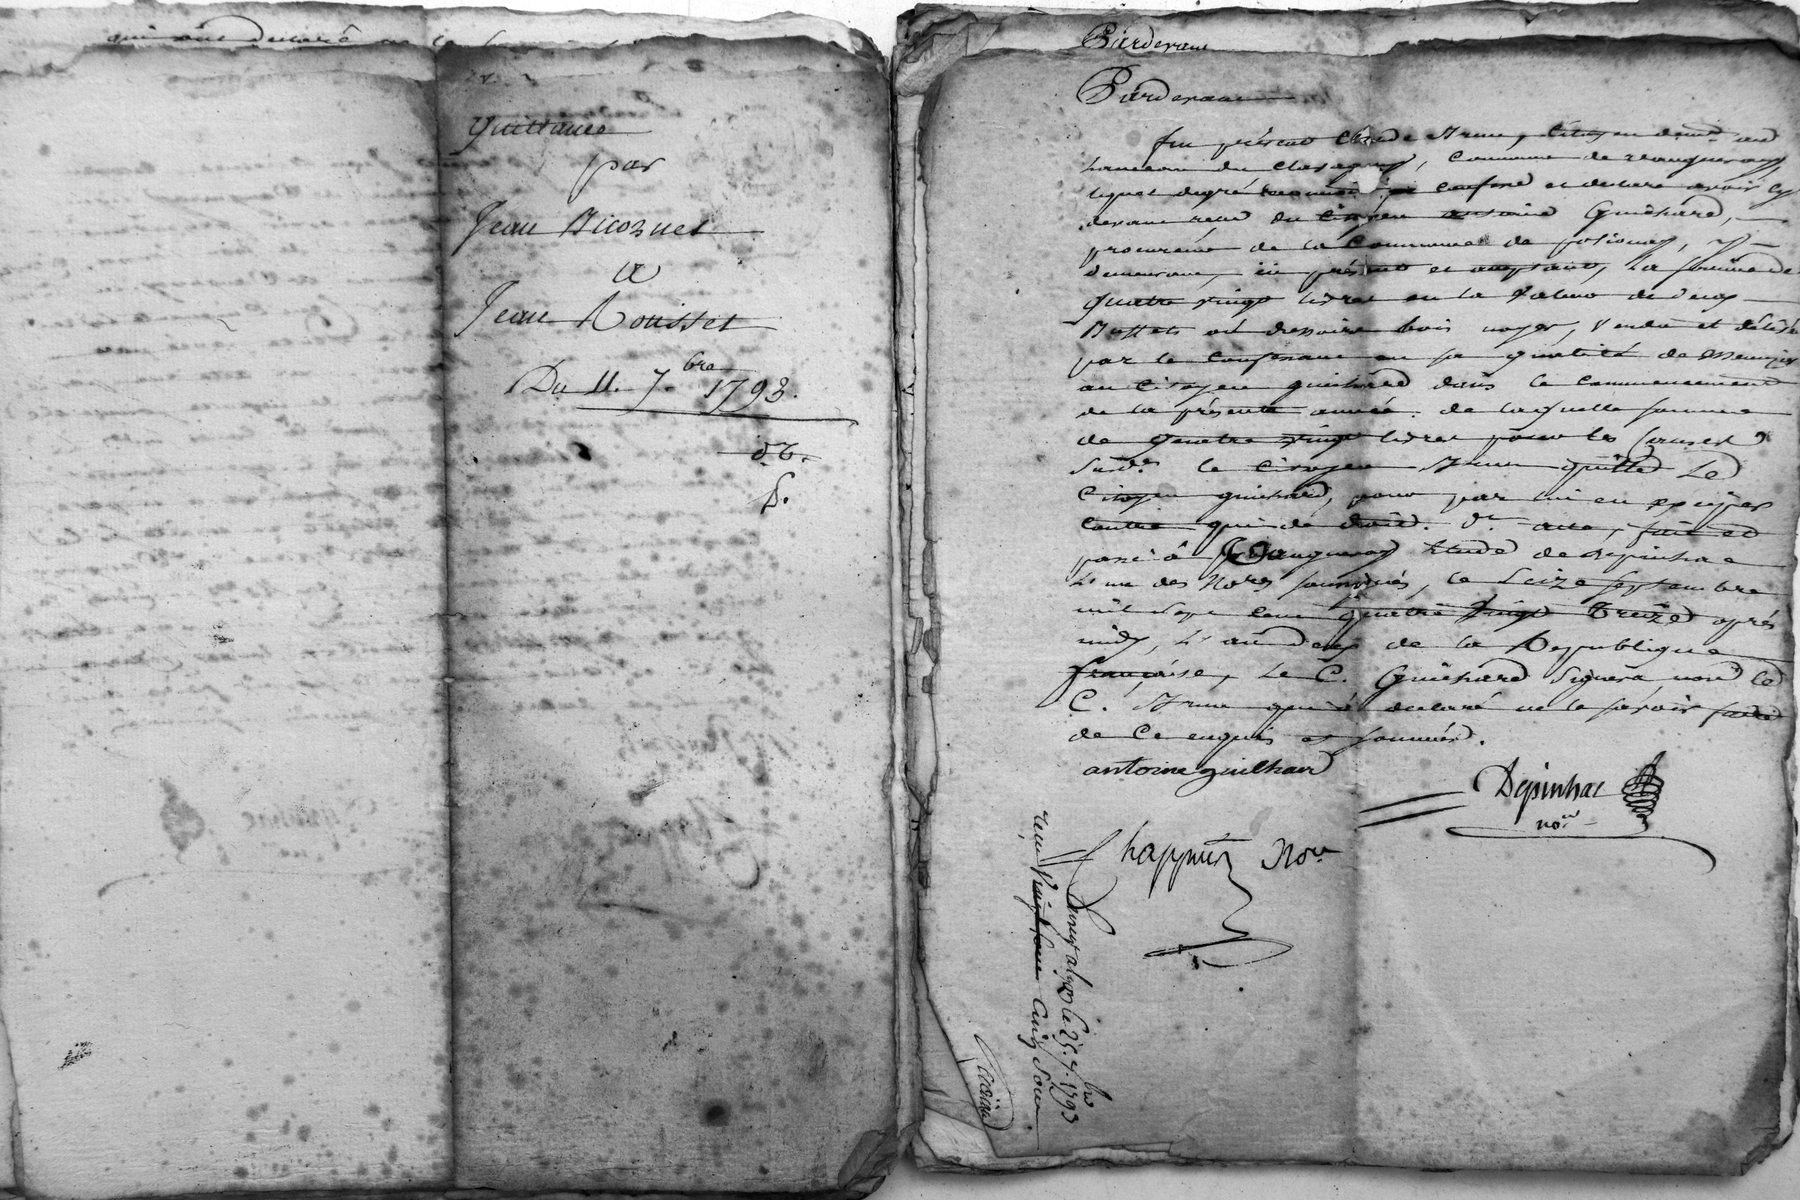 qui ont declaré
Quittance
par
Jean Bicoznet
a
Jean Rousset
Du 11. 7.bre 1793.
Pardevant
Pardevant
fut présent Claude Brun, Citoyen demt. au
hameau du , Commune de vaugneray,
lequel degré confesse et declare avoir cy
devant reçu du Citoyen antoine Guichard,
procureur de la Commune de , y
demeurant, ici présent et acceptant, la somme de
quatre vingt livres en la valeur de deux
Buffets ou dressoirs bois noyer, vendu et délivré
par le Confessant en sa qualité de Menuizier
au Citoyen guichard dans le Commencement
de la présente année. de laquelle somme
de quatre vingt livres pour les Causes
susd. le Citoyen Brun quitte Le
Citoyen guichard, pour par lui en
Contre qui de droit. dt. acte, fait et
passé à vaugneray Etude de Depinhac
L'un des Nores soussignés, le Seize Septembre
mil sept Cent quatre vingt Treize après
midy, L'an deux de la Republique
française, Le C. Guichard Signera non le
C. Brun qui a declaré ne le savoir faire
de Ce enquis et sommés.
antoine guilhard
Depinhac
nore
Chappuis Nore
le 25. 7bre 1793
reçu Vingt Cinq Sous